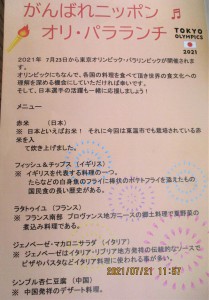 がんばれニッポン
オリ・パラランチ
TOKYO
OLYMPICS
2021
2021年 7月23日から東京オリンピック・パラリンピックが開催されます。
オリンピックにちなんで、各国の料理を食べて頂き世界の食文化への
理解を深める機会にしていただければ幸いです。
そして、日本選手の活躍も一緒に応援しましょう!
メニュー
赤米 (日本)
※ 日本といえばお米! それに今回は東温市でも栽培されている赤米を入
て炊き上げました。
フィッシュ&チップス (イギリス)
※ イギリスを代表する料理の一つ。
たらなどの白身魚のフライに棒状のポテトフライを添えたもの
国民食の長い歴史がある。
ラタトゥイユ (フランス)
※ フランス南部 プロヴァンス地方ニースの郷土料理で夏野菜の
煮込み料理である。
ジェノベーゼ・マカロニサラダ (イタリア)
※ ジェノベーゼはイタリア・リグリア地方発祥の伝統的なソースで
ピザやパスタなどイタリア料理に使われる事が多い。
シンプル杏仁豆腐 (中国)
※ 中国発祥のデザート料理。
2021/07/21 11:57